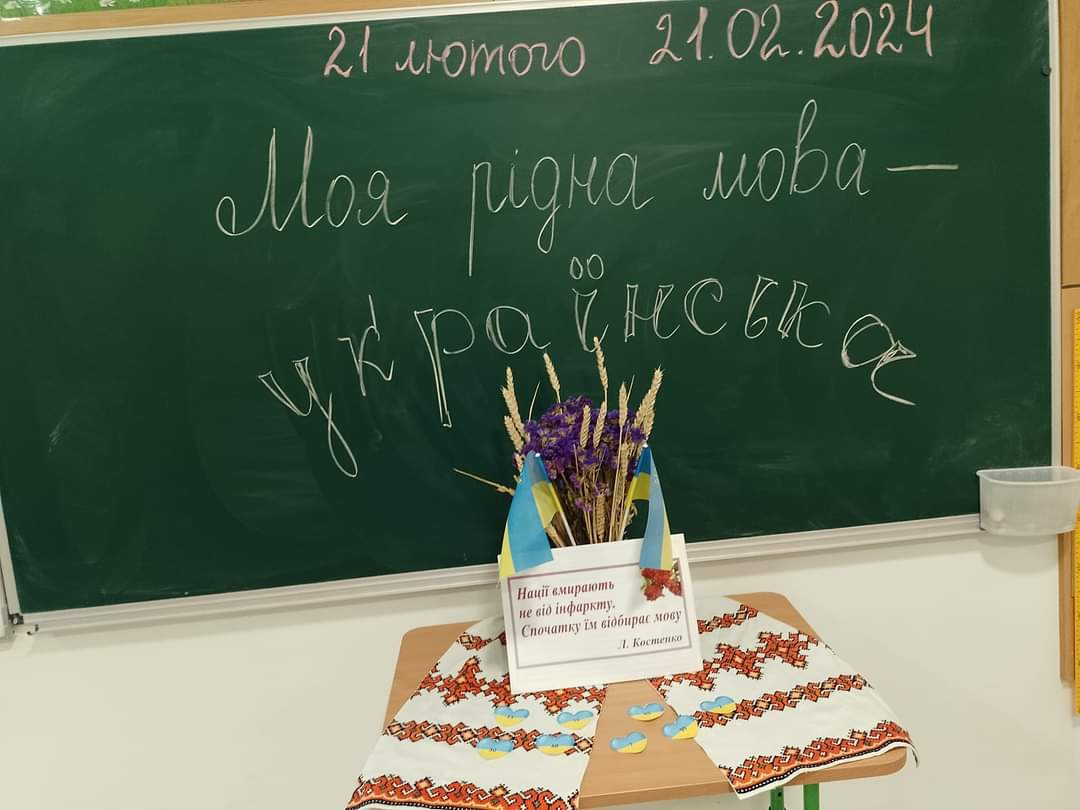 21 лютого 21.02.2024
Моя рідна мова —
українська
Нації вмирають
не від інфаркту.
Спочатку їм відбирає мову
Л. Костенко